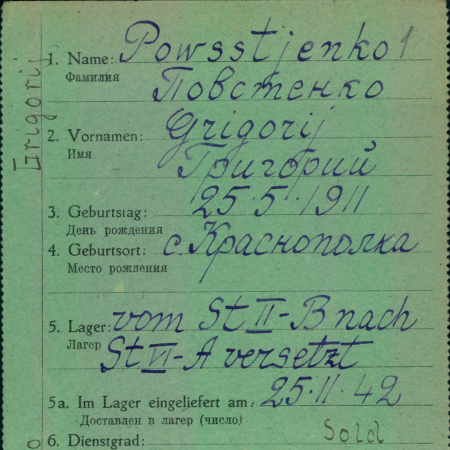 1. Name: Powsstjenko 1
Фамилия Повстенко
2. Vornamen: Grigorij
Имя Григорий
3. Geburtstag: 25·5·1911
День рождения
4. Geburtsort: с. Краснополка
Место рождения
5. Lager: vom St II-B nach
Лагер St VI-A versetzt
5a. Im Lager eingeliefert am: 25·11·42
Доставлен в лагер (число)
6. Dienstgrad: Sold
Grigorij